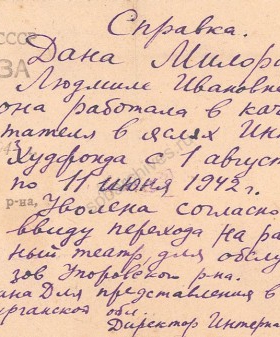 СССР
Справка.
ЗА
Дана Милор
Людмиле Ивановне
она работала в кач
тателя в яслях Ин
Худфонда с 1 август
по 11 июня 1942 г.
р-на,
Уволена согласно
ввиду перехода на ра
ный театр, для обслу
зов Упоровском р-на.
ана для представления в
урганской обл.
Директор Интерна